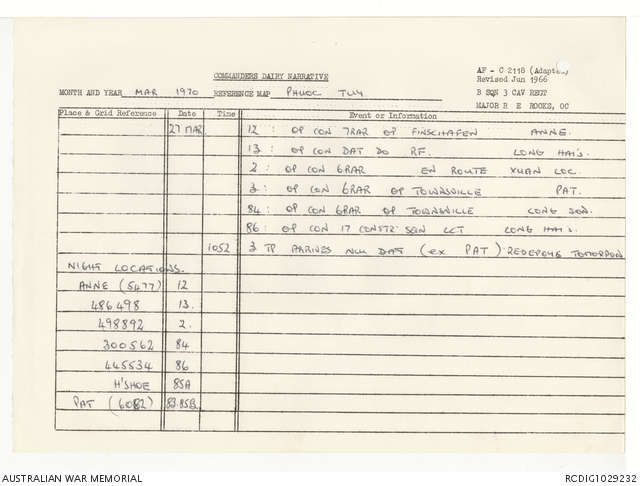 COMMANDERS DAIRY NARRATIVE
AF - C 2118 (Adapted)
Revised Jun 1966
MONTH AND YEAR MAR 1970 REFERENCE MAP PHUOC TUY
B SQN 3 CAV REGT
MAJOR R E ROOKS, OC
Place & Grid Reference Date Time Event or Information
27 MAR 12 : OP CON 7RAR OP FINSCHAFEN ANNE.
13 : OP CON DAT DO RF. LONG HAI'S.
2 : OP CON 6RAR EN ROUTE XUAN LOC.
3 : OP CON 6RAR OP TOWNSVILLE PAT.
84 : OP CON 6RAR OP TOWNSVILLE LONG SON.
86 : OP CON 17 CONSTR SQN LCT LONG HAI'S
1052 3 TP ARRIVES NUI DAT (ex PAT) REDEPLOYS TOMORROW
NIGHT LOCATIONS.
ANNE (5477) 12
486498 13.
498892 2.
300562 84
445534 86
H'SHOE 85A
PAT (6082) 83.85B
AUSTRALIAN WAR MEMORIAL RCDIG1029232